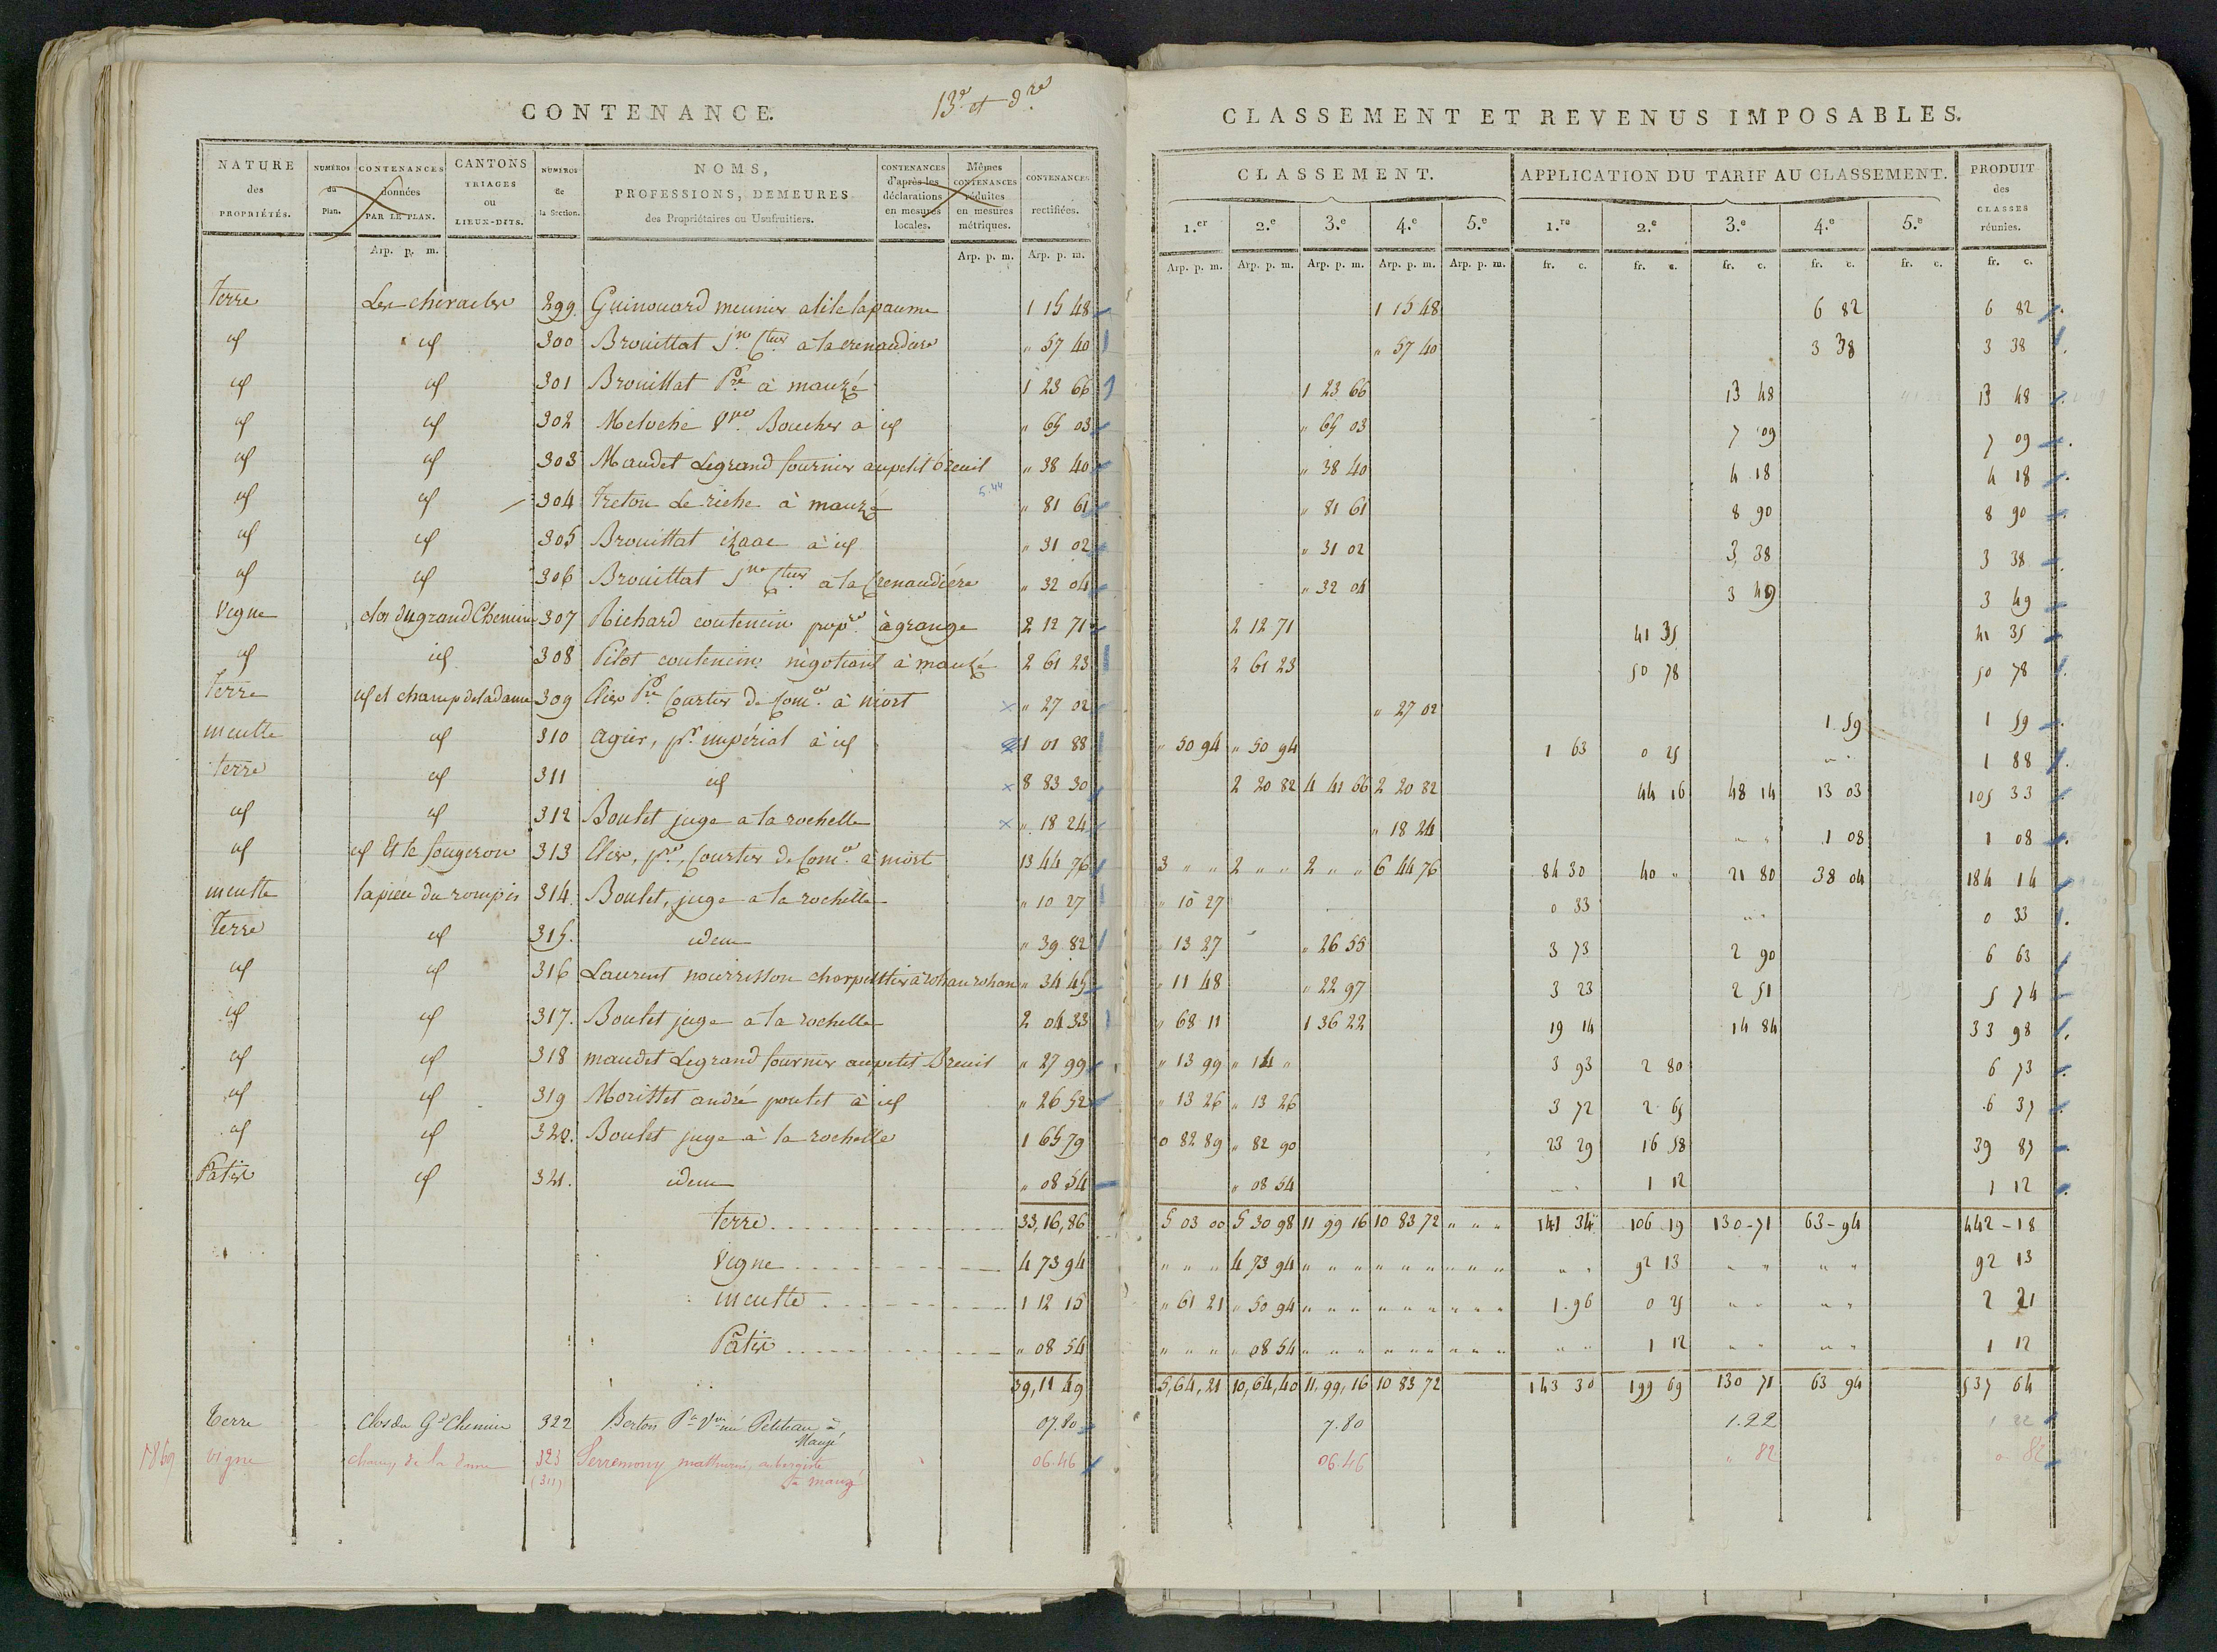 CONTENANCE.
13e et dre
NATURE des PROPRIÉTÉS. NUMÉROS du Plan. CONTENANCES données PAR LE PLAN. CANTONS TRIAGES ou LIEUX-DITS. NUMÉROS de la Section. NOMS, PROFESSIONS, DEMEURES des Propriétaires ou Usufruitiers. CONTENANCES d'après les déclarations en mesures locales. Mêmes CONTENANCES réduites en mesures métriques. CONTENANCES rectifiées.
Arp. p. m. Arp. p. m. Arp. p. m.
terre 299. Guinouard meunier 1 15 48
id id 300 Brouillat 〃 57 40
id id 301 Brouillat Pre à mauzé 1 23 66
id id 302 Meloché Vve Boucher à id 〃 65 03
id id 303 Maudet Legrand fournier au petit breuil 〃 38 40
id id 304 Treton Le riche à mauzé 5.44 〃 81 61
id id 305 Brouillat izaac à id 〃 31 02
id id 306 Brouillat à la Crenaudière 〃 32 04
Vigne clos du grand Chemin 307 Richard coutencin propre à grange 2 12 71
id id 308 Pilot coutencin négotiant à mauzé 2 61 23
terre id et champ de la dame 309 Pre Courtier de Comce à niort × 〃 27 02
inculte id 310 agier, pr impérial à id 1 01 88
terre id 311 id × 8 83 30
id id 312 Boulet juge a la rochelle × 〃 18 24
id id Et le fougerou 313 pre, Courtier de Comce à niort 13 44 76
inculte la pièce du rompis 314. Boulet, juge a la rochelle 〃 10 27
Terre id 315. idem 〃 39 82
id id 316 Laurent nourrisson charpentier à rohan rohan 〃 34 45
id id 317. Boulet juge a la rochelle 2 04 33
id id 318 maudet Legrand fournier au petit Breuil 〃 27 99
id id 319 Morillet andré poulet à id 〃 26 52
id id 320. Boulet juge à la rochelle 1 65 79
Patis id 321. idem 〃 08 54
terre 33,16,86
Vigne 4 73 94
inculte 1 12 15
Pâtis 〃 08 54
39,11 49
terre Clos du Gd Chemin 322 Berton Vve née Petiteau à Mauzé 07.80
vigne champ de la dame 323 (311) mathurin, aubergiste à mauzé 06.46
CLASSEMENT ET REVENUS IMPOSABLES.
CLASSEMENT. APPLICATION DU TARIF AU CLASSEMENT. PRODUIT des CLASSES réunies.
1.er 2.e 3.e 4.e 5.e 1.re 2.e 3.e 4.e 5.e
Arp. p. m. Arp. p. m. Arp. p. m. Arp. p. m. Arp. p. m. fr. c. fr. c. fr. c. fr. c. fr. c. fr. c.
1 15 48 6 82 6 82
〃 57 40 3 38 3 38
1 23 66 13 48 13 48
〃 65 03 7 09 7 09
〃 38 40 4 18 4 18
〃 81 61 8 90 8 90
〃 31 02 3 38 3 38
〃 32 04 3 49 3 49
2 12 71 41 35 41 35
2 61 23 50 78 50 78
〃 27 02 1 59 1 59
〃 50 94 〃 50 94 1 63 0 25 1 88
2 20 82 4 41 66 2 20 82 44 16 48 14 13 03 105 33
〃 18 24 1 08 1 08
3 〃 〃 2 〃 〃 2 〃 〃 6 44 76 84 30 40 〃 21 80 38 04 184 14
〃 10 27 0 33 0 33
〃 13 27 〃 26 55 3 73 2 90 6 63
〃 11 48 〃 22 97 3 23 2 51 5 74
〃 68 11 1 36 22 19 14 14 84 33 98
〃 13 99 〃 14 〃 3 93 2 80 6 73
〃 13 26 〃 13 26 3 72 2 65 6 37
0 82 89 〃 82 90 23 29 16 58 39 87
〃 08 54 1 12 1 12
5 03 00 5 30 98 11 99 16 10 83 72 〃 〃 〃 141 34 106 19 130-71 63-94 442-18
〃 〃 〃 4 73 94 〃 〃 〃 〃 〃 〃 〃 〃 〃 〃 〃 92 13 〃 〃 〃 〃 92 13
〃 61 21 〃 50 94 〃 〃 〃 〃 〃 〃 〃 〃 〃 1.96 0 25 〃 〃 〃 〃 2 21
〃 〃 〃 〃 08 54 〃 〃 〃 〃 〃 〃 〃 〃 〃 〃 〃 1 12 〃 〃 〃 〃 1 12
5,64,21 10,64,40 11,99,16 10 83 72 143 30 199 69 130 71 63 94 537 64
7.80 1.22 1 22
06.46 〃 82 0. 82